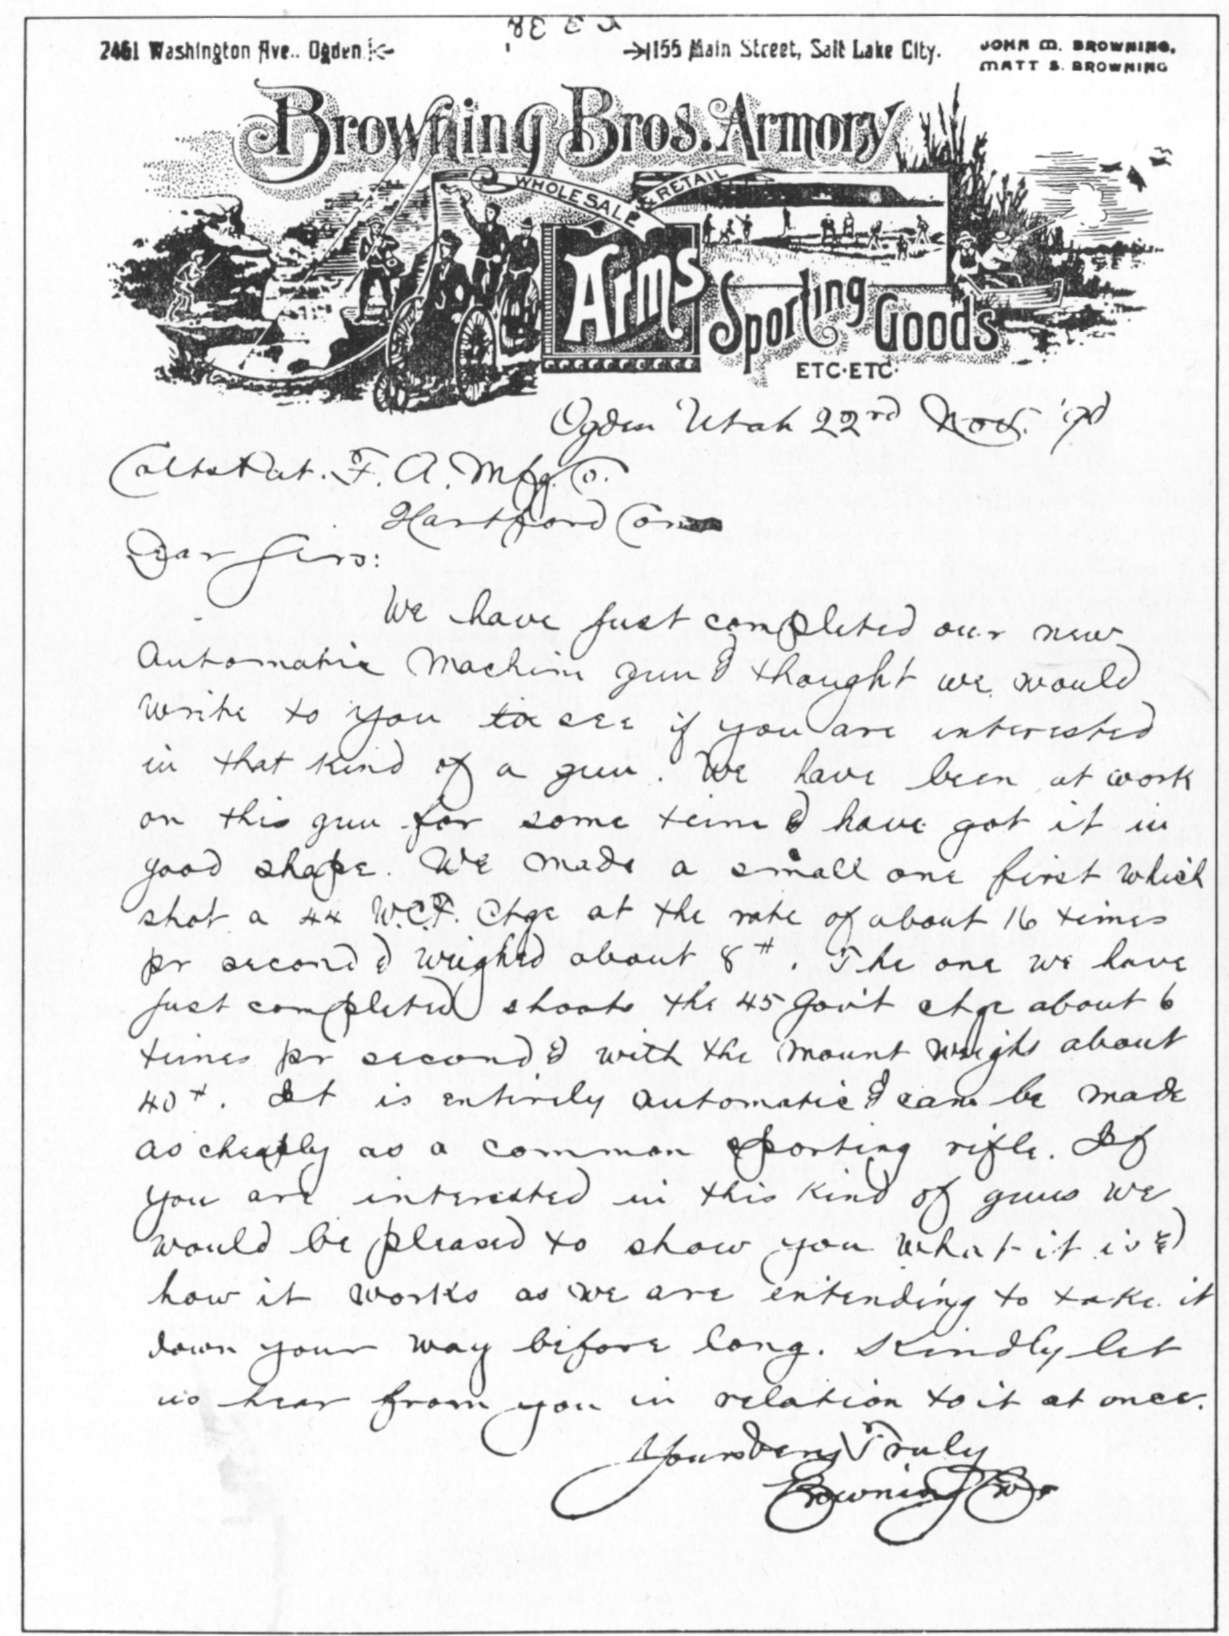 2461 Washington Ave.. Ogden
155 Main Street, Salt Lake City.
JOHN M. BROWNING.
MATT S. BROWNING
Browning Bros. Armory
WHOLESALE & RETAIL
Arms
Sporting Goods
ETC. ETC.
Ogden Utah 22nd Nov. '90
Colts Pat. F. A. Mfg. Co.
Hartford Conn
Dear Sirs:
We have just completed our new
Automatic Machine gun & thought we would
write to you to see if you are interested
in that kind of a gun. We have been at work
on this gun for some time & have got it in
good shape. We made a small one first which
shot a 44 W.C.F. Ctge at the rate of about 16 times
pr second & weighed about 8#. The one we have
just completed shoots the 45 Gov't ctge about 6
times pr second & with the mount weighs about
40#. It is entirely automatic & can be made
as cheaply as a common sporting rifle. If
you are interested in this kind of guns we
would be pleased to show you what it is &
how it works as we are entending to take it
down your way before long. Kindly let
us hear from you in relation to it at once.
Yours Very Truly
Browning Bros